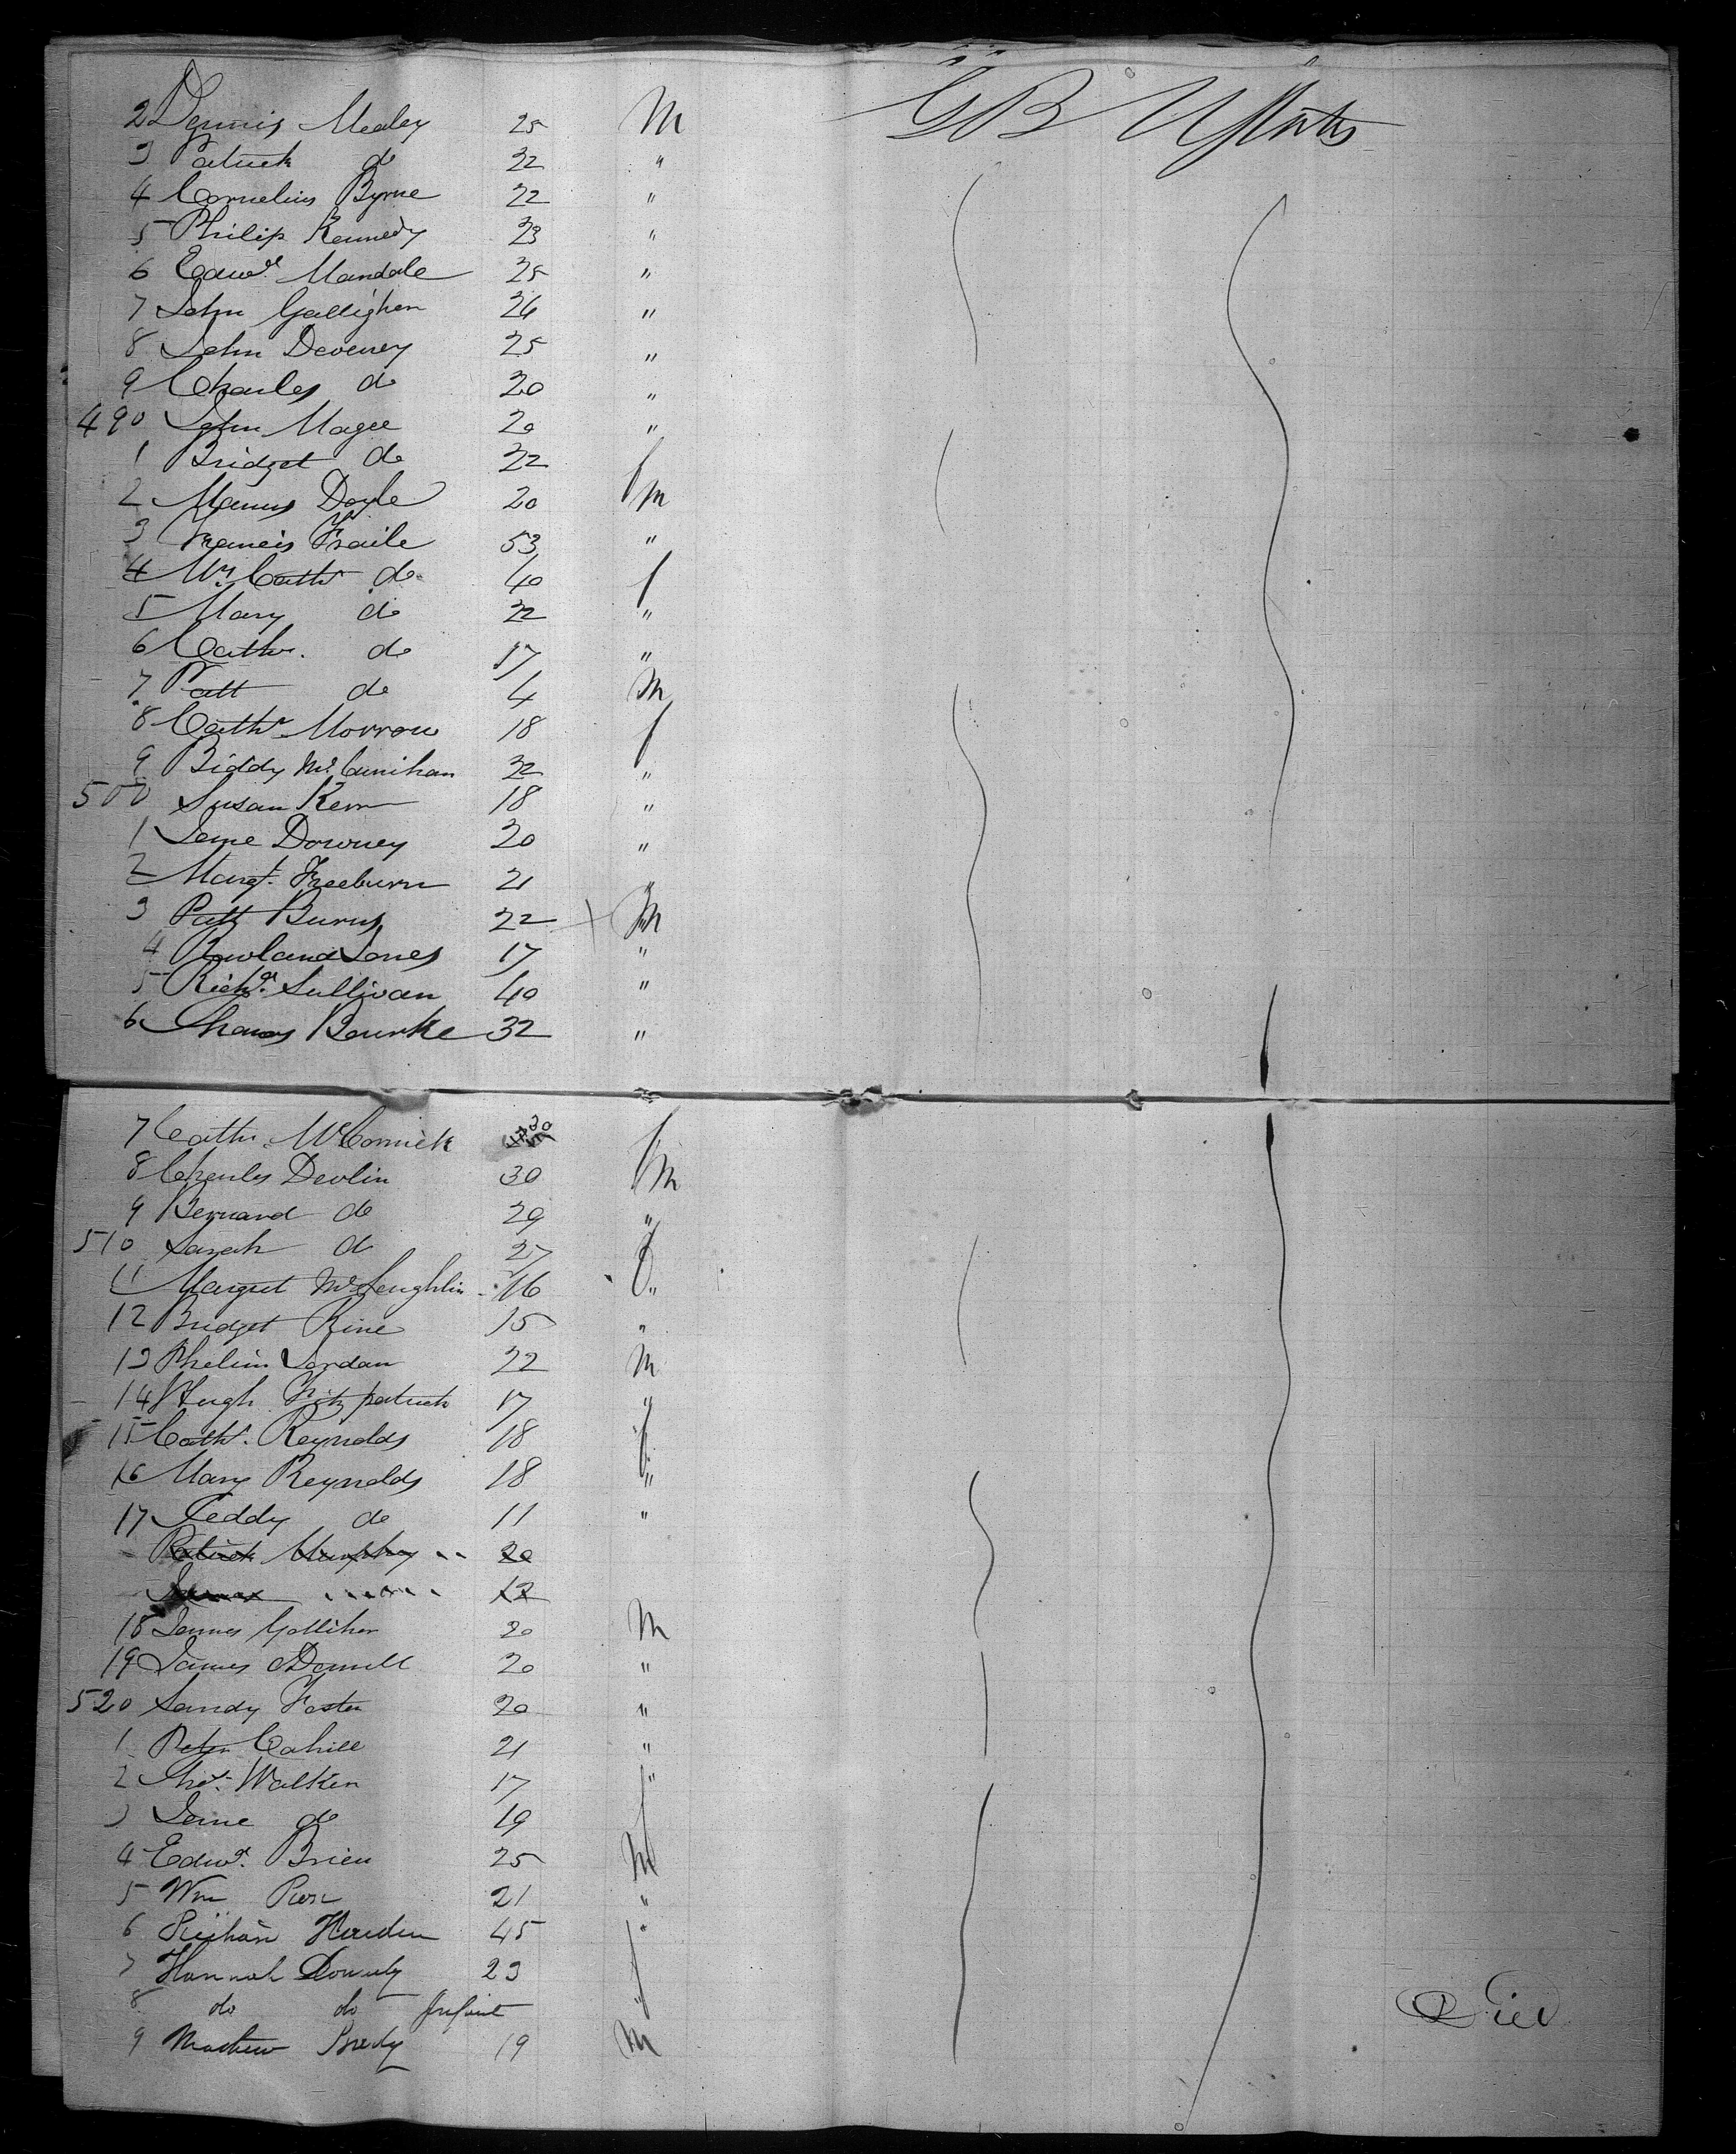 2 Dennis Mealey 25 M GB UStates
3 Patrick do 22 "
4 Cornelius Byrne 22 "
5 Philip Kennedy 23 "
6 Edwd. Mandale 25 "
7 John Gallighen 26 "
8 John Deveney 25 "
9 Charles do 20 "
490 John Magee 20 "
1 Bridget do 22 f
2 Manus Doyle 20 m
3 Francis Fraile 53 "
4 Mrs. Cathr do 40 f
5 Mary do 22 "
6 Cathr. do 17 "
7 Patt do 4 M
8 Cathr Morrow 18 f
9 Biddy McCunihan 22 "
500 Susan Kerr 18 "
1 Jane Downey 20 "
2 Margt. Freeburn 21 "
3 Patt Burns 22 M
4 Rowland Jones 17 "
5 Richd. Sullivan 40 "
6 Thomas Bourke 32 "
7 Cathr McCormick 30 f
8 Charles Devlin 30 M
9 Bernard do 29 "
510 Sarah do 27 f
11 Margret McLoughlin 16 "
12 Bridget Rine 15 "
13 Phelim Jordan 22 M
14 Hugh Fitzpatrick 17 "
15 Cathr. Reynolds 18 f
16 Mary Reynolds 18 "
17 Teddy do 11 "
Patrick Murphy 20
James 12
18 James Golliher 20 M
19 James ODonnell 20 "
520 Sandy Foster 20 "
1 Peter Cahill 21 "
2 Thos. Walker 17 "
3 Jane do 19 f
4 Edwd. Brien 25 M
5 Wm 21 "
6 45 "
7 Hannah 23 f
8 do do Infant " Died
9 Mathew Bredy 19 M